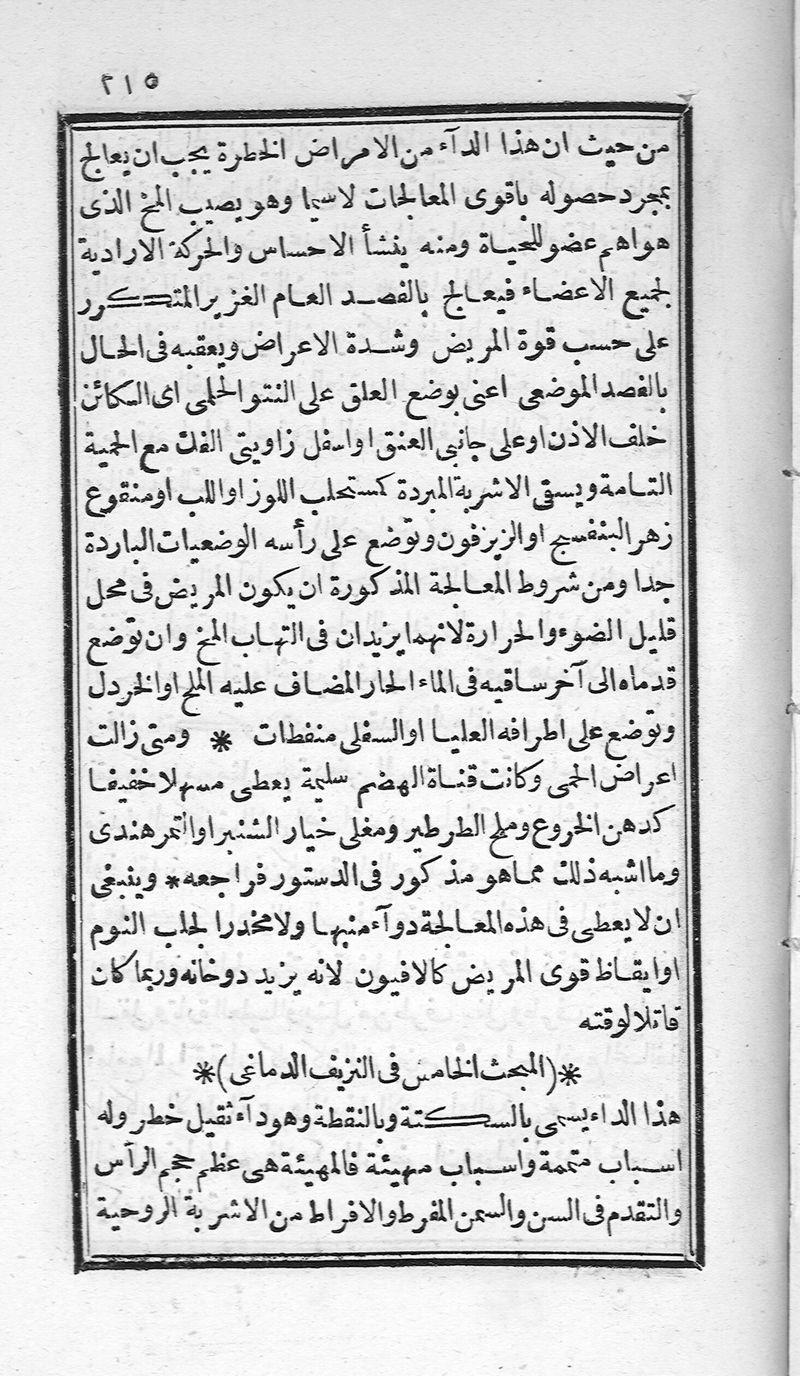 ٢١٥
من حيث ان هذا الدآء من الامراض الخطرة يجب ان يعالج
بمجرد حصوله باقوى المعالجات لاسيما وهو يصيب المخ الذى
هو اهم عضو للحياة ومنه ينشأ الاحساس والحركة الارادية
لجميع الاعضاء فيعالج بالفصد العام الغزير المتكرر
على حسب قوة المريض وشدة الاعراض ويعقبه فى الحال
بالفصد الموضعى اعنى بوضع العلق على النتو الحلمى اى الكائن
خلف الاذن او على جانبى العنق او اسفل زاويتى الفك مع الحمية
التامة ويسقى الاشربة المبردة كمستحلب اللوز او اللب او منقوع
زهر البنفسج او الزيزفون وتوضع على رأسه الوضعيات الباردة
جدا ومن شروط المعالجة المذكورة ان يكون المريض فى محل
قليل الضوء والحرارة لانهما يزيدان فى التهاب المخ وان توضع
قدماه الى آخر ساقيه فى الماء الحار المضاف عليه الملح او الخردل
وتوضع على اطرافه العليا او السفلى منفطات * ومتى زالت
اعراض الحمى وكانت قناة الهضم سليمة يعطى مسهلا خفيفا
كدهن الخروع وملح الطرطير ومغلى خيار الشنبر او التمر هندى
وما اشبه ذلك مما هو مذكور فى الدستور فراجعه * وينبغى
ان لا يعطى فى هذه المعالجة دوآء منبها ولا مخدرا لجلب النوم
او ايقاظ قوى المريض كالافيون لانه يزيد دوخانه وربما كان
قاتلا لوقته
*(المبحث الخامس فى النزيف الدماغى)*
هذا الداء يسمى بالسكتة وبالنقطة وهو دآء ثقيل خطر وله
اسباب متممة واسباب مهيئة فالمهيئة هى عظم حجم الرأس
والتقدم فى السن والسمن المفرط والافراط من الاشربة الروحية